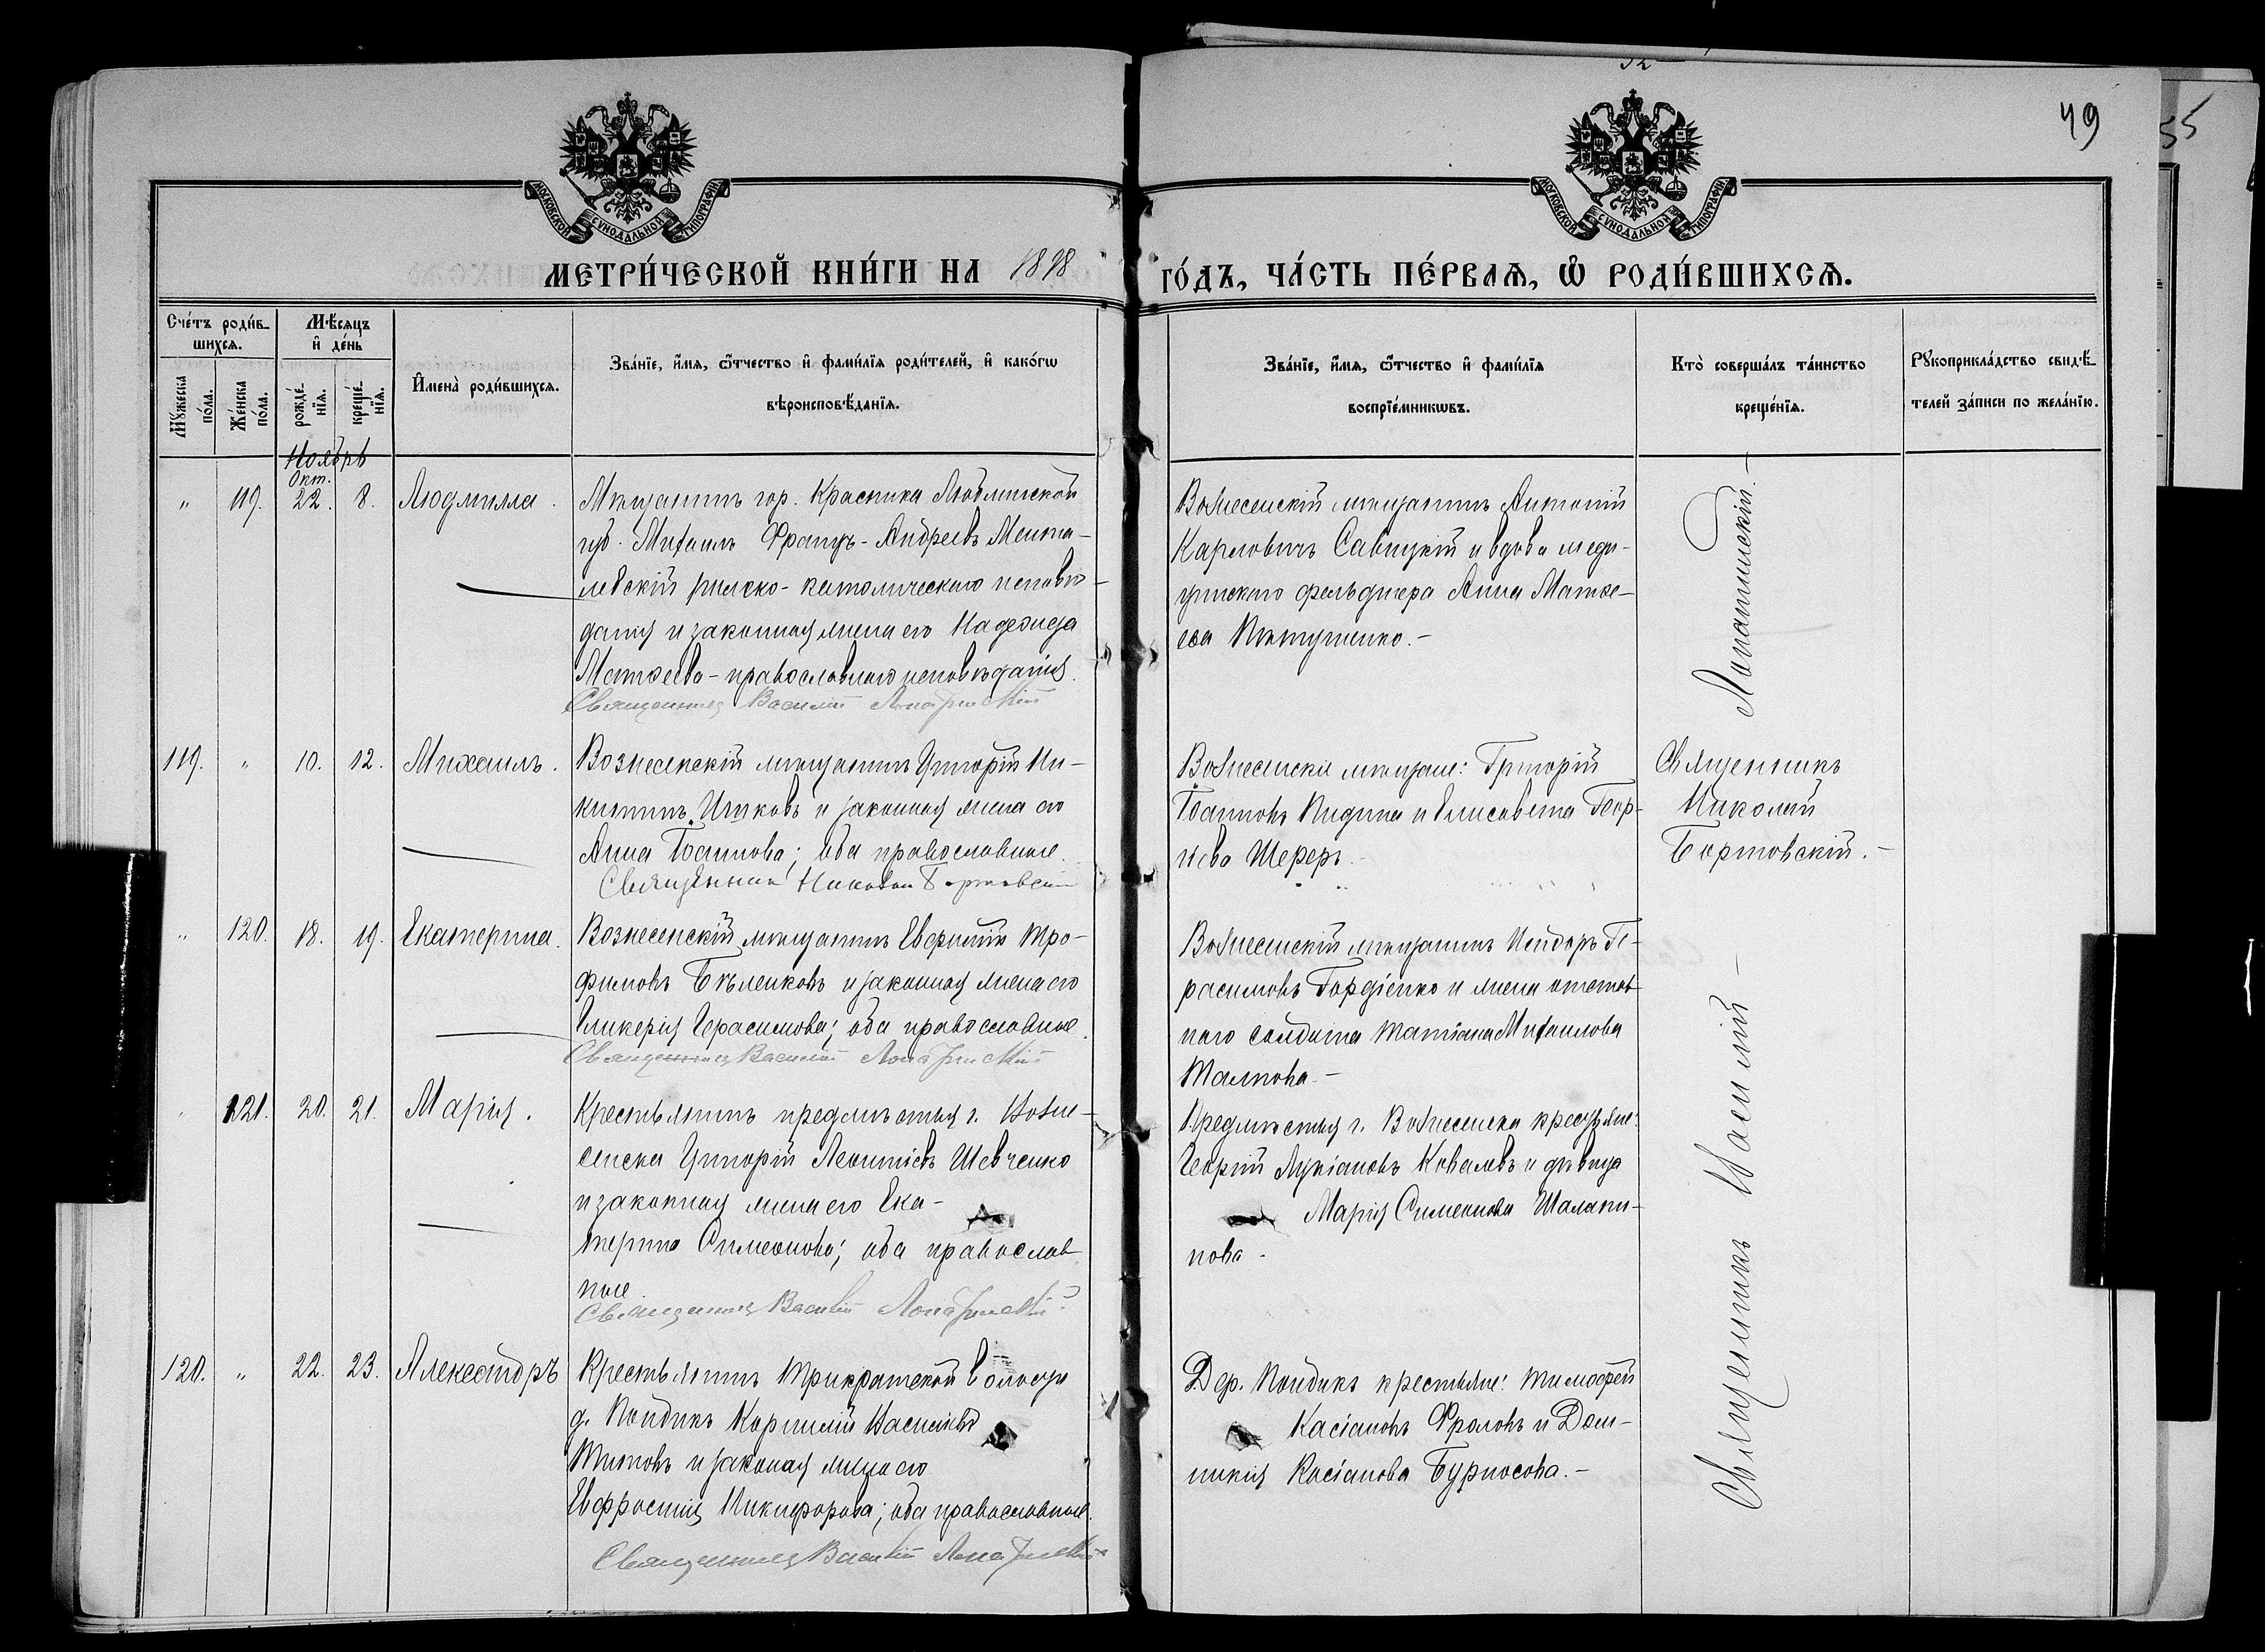 49
55
МОСКОВСКОЙ СѴНОДАЛЬНОЙ ТИПОГРАФІИ
МОСКОВСКОЙ СѴНОДАЛЬНОЙ ТИПОГРАФІИ
МЕТРИ́ЧЕСКОЙ КНИ́ГИ НА 1898 ГО́ДЪ, ЧА́СТЬ ПЕ́РВАѦ, Ѿ РОДИ́ВШИХСѦ.
Сче́тъ роди́в-
шихсѧ.
Му́жеска по́ла.
Же́нска по́ла.
Мѣ́сѧцъ
и҆ де́нь
рожде́нїѧ.
креще́нїѧ.
И҆мена̀ роди́вшихсѧ.
Зва́нїе, и҆́мѧ, ѻ҆́тчество и҆ фами́лїѧ роди́телей, и҆ како́гѡ
вѣроисповѣ́данїѧ.
Зва́нїе, и҆́мѧ, ѻ҆́тчество и҆ фами́лїѧ
воспрїе́мникѡвъ.
Кто̀ соверша́лъ та́инство
креще́нїѧ.
Рꙋкоприкла́дство свидѣ́-
телей за́писи по жела́нїю.
Ноябрь
Окт.
" 119. 22. 8. Людмила.
Мѣщанинъ гор. Красника Люблинской
губ. Михаилъ Францъ-Андреевъ
римско-католическаго исповѣ-
данія и законная жена его Надежда
Матѳеева - православнаго исповѣданія.
Священникъ Василій Лопатинскій
Вознесенскій мѣщанинъ Антоній
Карловичъ Савицкій и вдова меди-
цинскаго фельдшера Анна Матѳе-
ева
Лопатинскій.
119. " 10. 12. Михаилъ.
Вознесенскій мѣщанинъ Григорій Ни-
китинъ и законная жена его
Анна Іоаннова; оба православные.
Священникъ Николай Бортовскій
Вознесенскіе мѣщане: Григорій
Іоанновъ и Елисавета Геор-
гіева Шереръ.
Священникъ
Николай
Бортовскій.
" 120. 18. 19. Екатерина.
Вознесенскій мѣщанинъ Евфимій Тро-
фимовъ Бѣленковъ и законная жена его
Гликерія Герасимова; оба православные.
Священникъ Василій Лопатинскій
Вознесенскій мѣщанинъ Исидоръ Ге-
расимовъ Гордіенко и жена отстав-
наго солдата Татіана Михаилова
121. 20. 21. Марія.
Крестьянинъ предмѣстья г. Возне-
сенска Григорій Леонтіевъ Шевченко
и законная жена его Ека-
терина Симеонова; оба православ-
ные.
Священникъ Василій Лопатинскій
Предмѣстья г. Вознесенска крестьяне:
Георгій Лукіановъ Ковалевъ и дѣвица
Марія Симеонова Шалапи-
нова.
Священникъ Василій
120. " 22. 23. Александръ
Крестьянинъ Трикратской волости
д. Корнилій Васильевъ
Титовъ и законная жена его
Евфросинія Никифорова; оба православные.
Священникъ Василій Лопатинскій
Дер. крестьяне: Тимофей
Касіановъ Фроловъ и Дом-
никія Касіанова Бурносова.